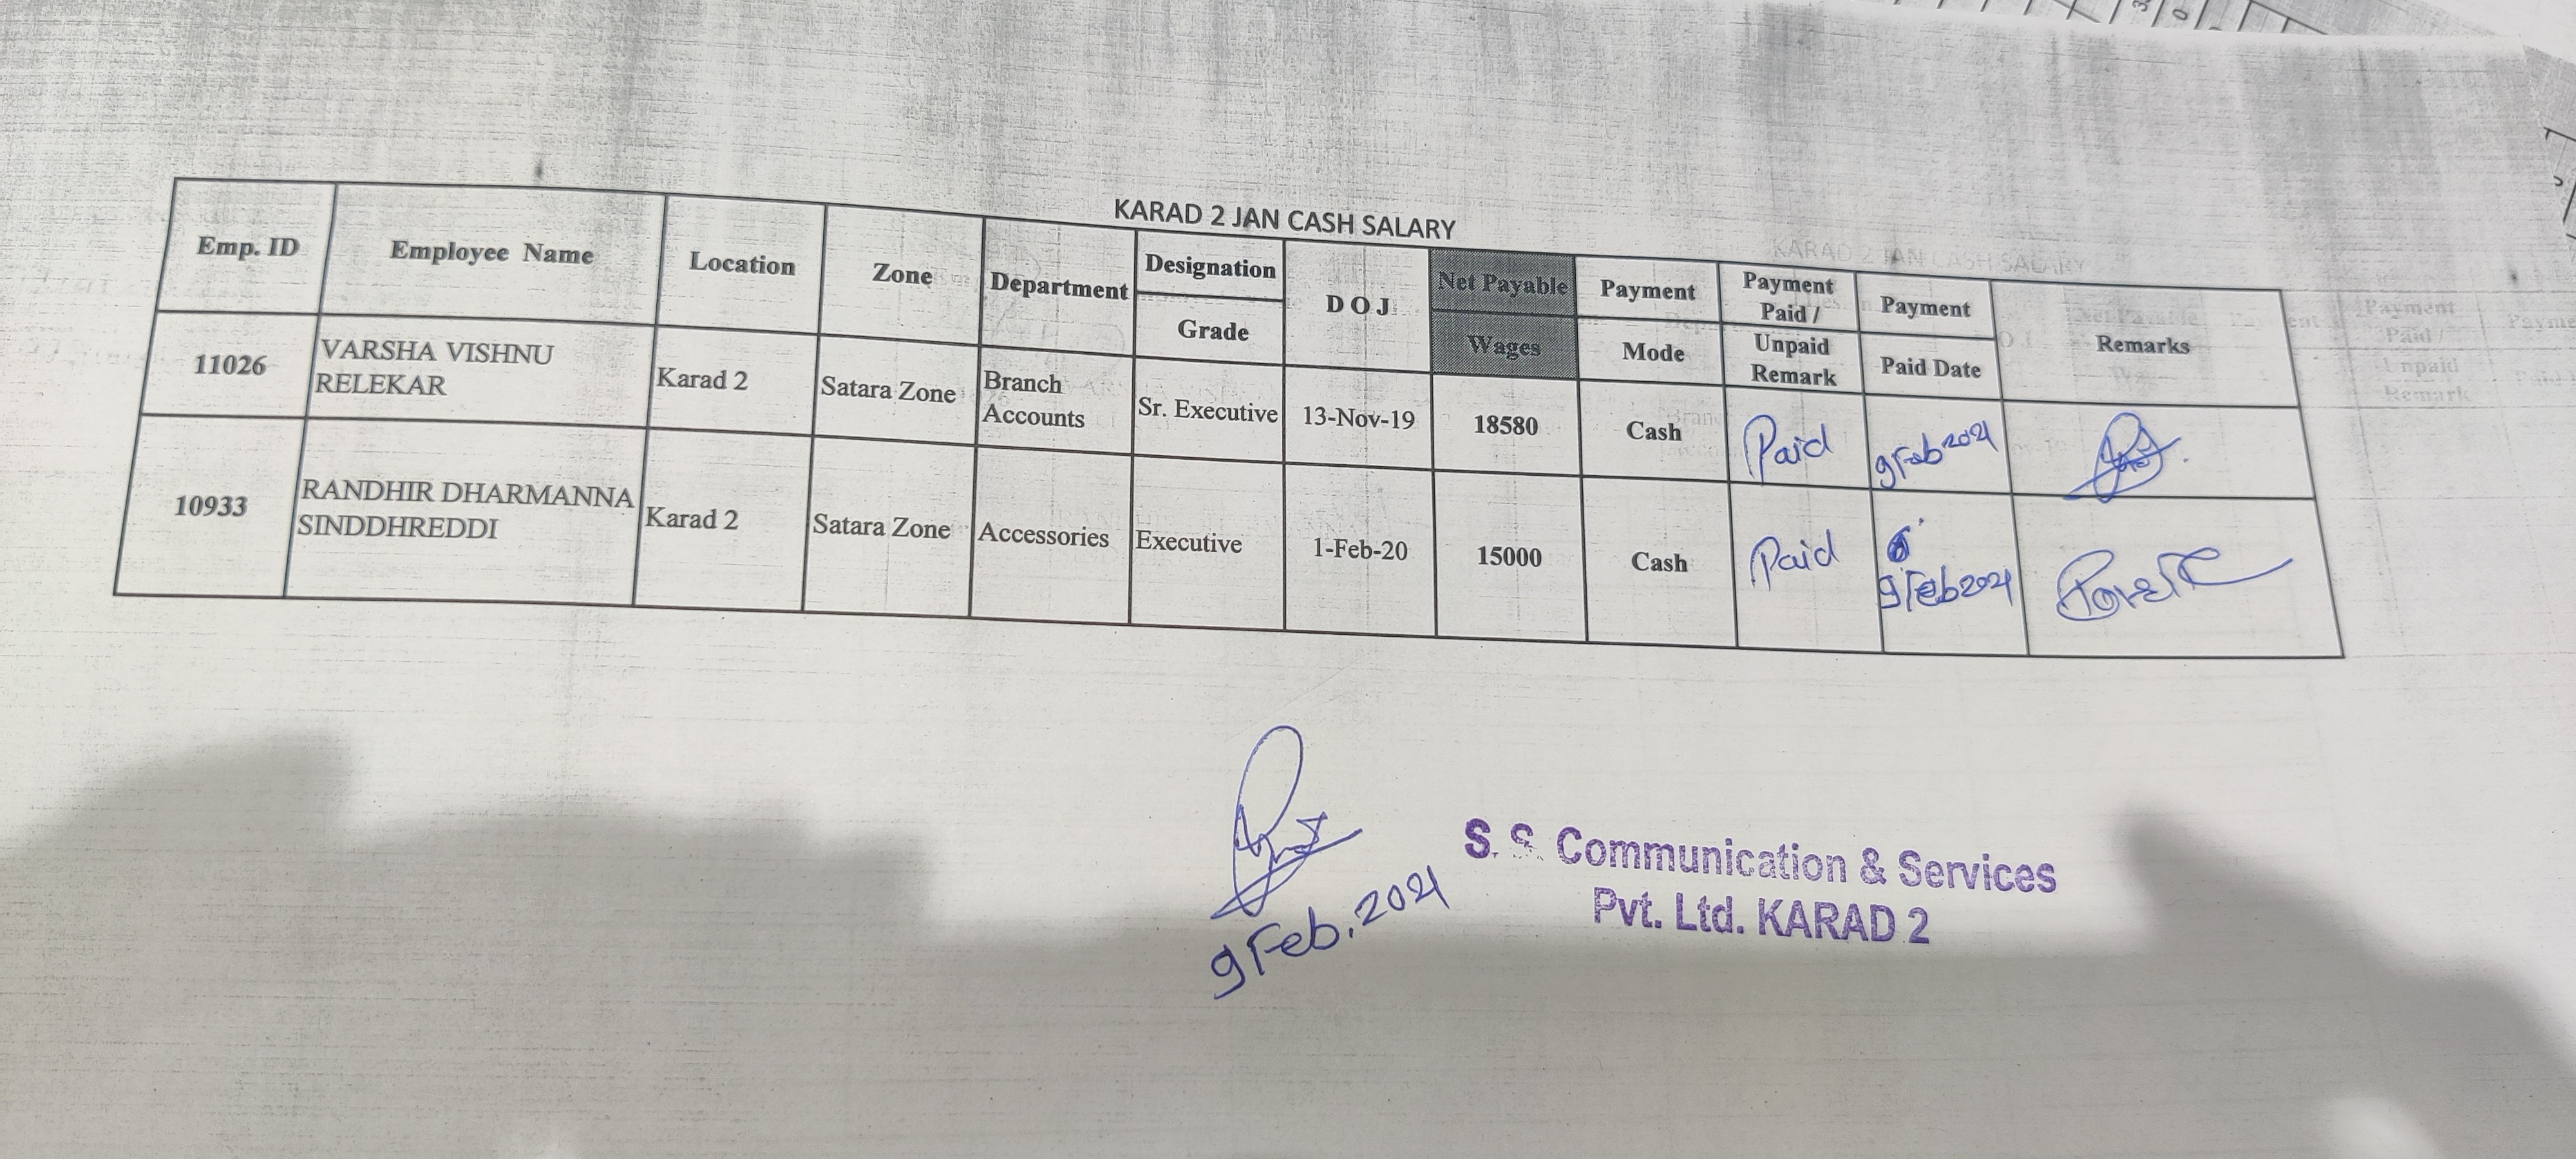 KARAD 2 JAN CASH SALARY
Emp. ID Employee Name Location Zone Department Designation Grade D O J Net Payable Wages Payment Mode Payment Paid / Unpaid Remark Payment Paid Date Remarks
11026 VARSHA VISHNU RELEKAR Karad 2 Satara Zone Branch Accounts Sr. Executive 13-Nov-19 18580 Cash Paid 9 Feb 2021
10933 RANDHIR DHARMANNA SINDDHREDDI Karad 2 Satara Zone Accessories Executive 1-Feb-20 15000 Cash Paid 9 Feb 2021
9 Feb. 2021
S. S. Communication & Services
Pvt. Ltd. KARAD 2